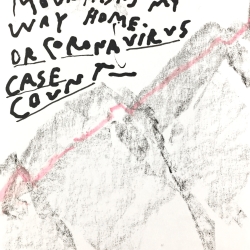 MOUNTAINS MY
WAY HOME.
OR CORONAVIRUS
CASE
COUNT